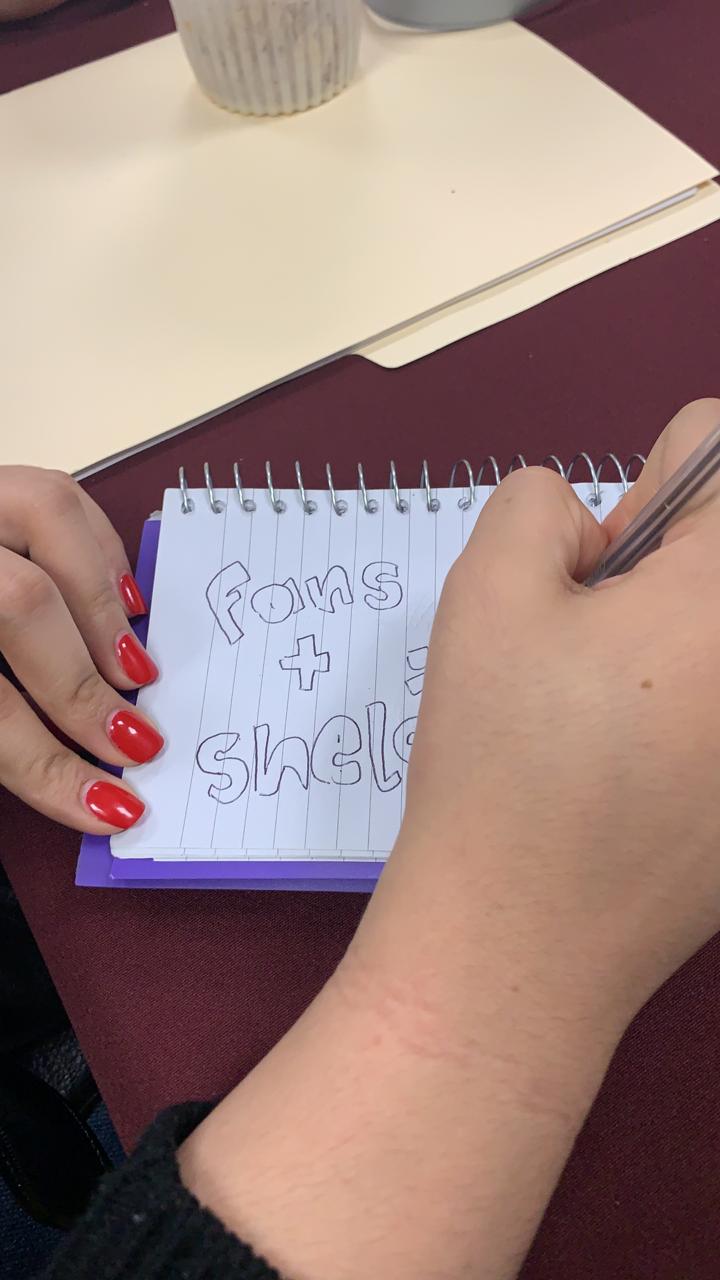 fans
+ =
shels